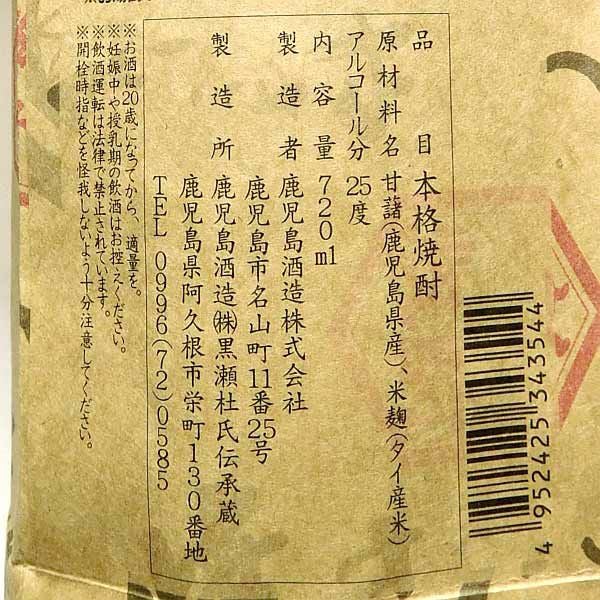 品目 本格焼酎
原材料名 甘藷(鹿児島県産)、米麹(タイ産米)
アルコール分 25度
内容量 720ml
製造者 鹿児島酒造株式会社
鹿児島市名山町11番25号
製造所 鹿児島酒造㈱黒瀬杜氏伝承蔵
鹿児島県阿久根市栄町130番地
TEL 0996(72)0585
※お酒は20歳になってから、適量を。
※妊娠中や授乳期の飲酒はお控えください。
※飲酒運転は法律で禁止されています。
※開栓時指などを怪我しないよう十分注意してください。
4 952425 343544